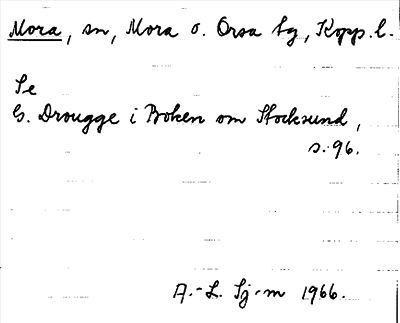 Mora, sn, Mora o. Orsa tg, Kopp. l.
Se
G. Drougge i Boken om Stocksund,
s. 96.
A.-L. Sj-m 1966.